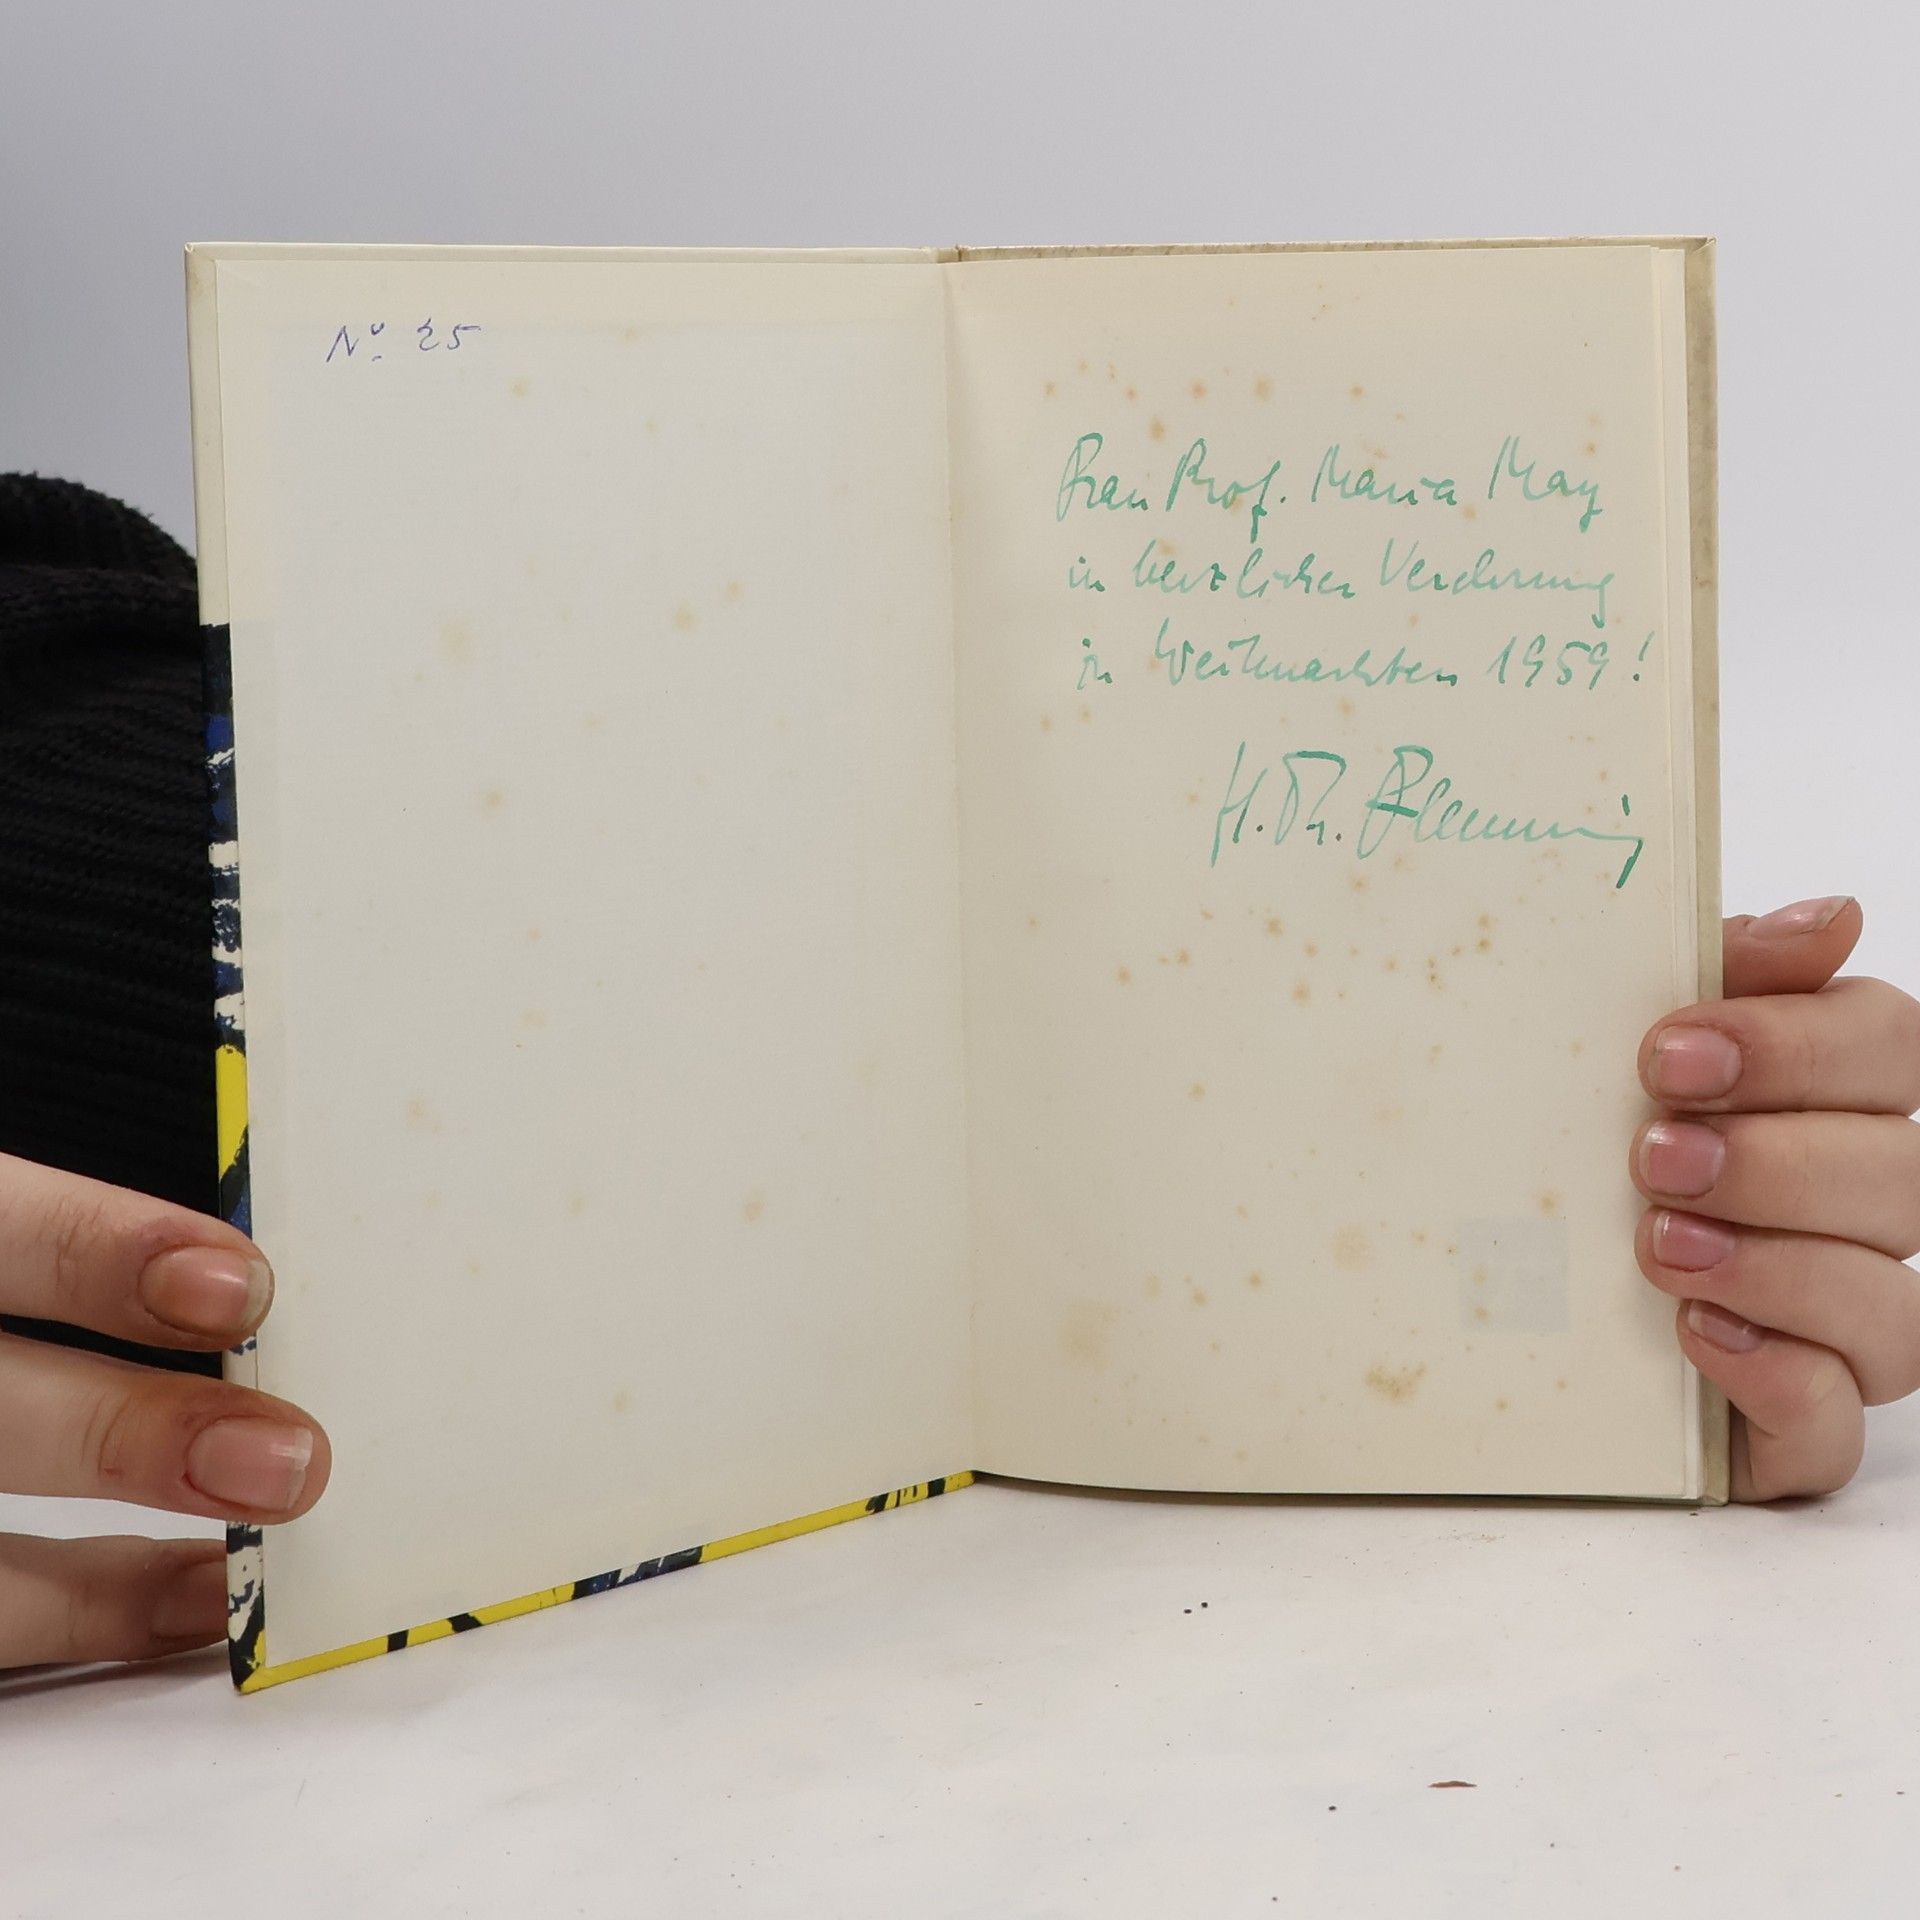 Nº 25
Frau Prof. Maria May
in herzlicher Verehrung
zu Weihnachten 1959!
H. Th. Flemming